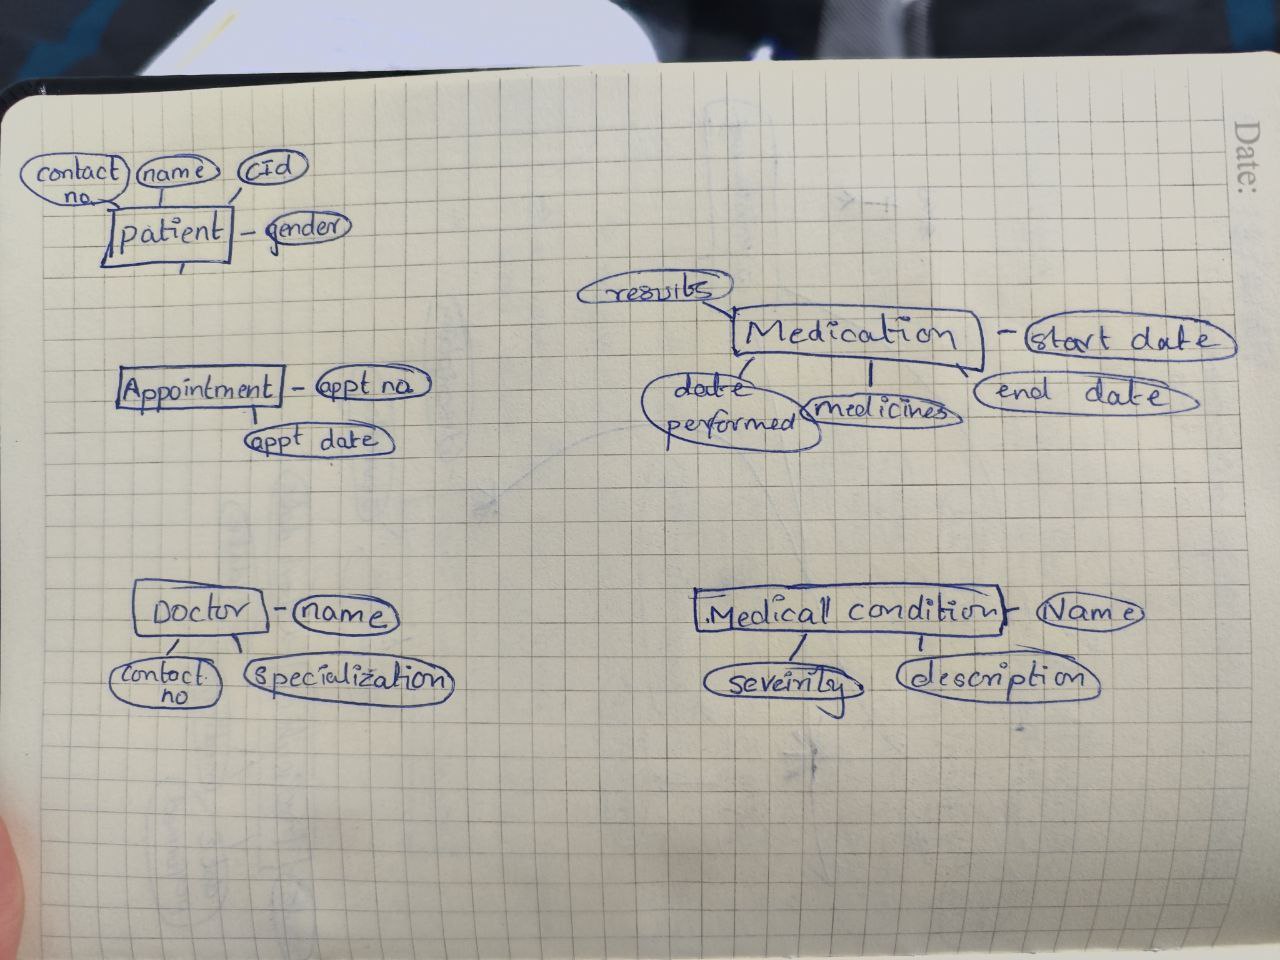 Date:
contact
no
name
CId
patient
gender
results
Medication
start date
Appointment
appt no
date
performed
medicines
end date
appt date
Doctor
name
Medicall condition
Name
contact
no
specialization
severirity
description